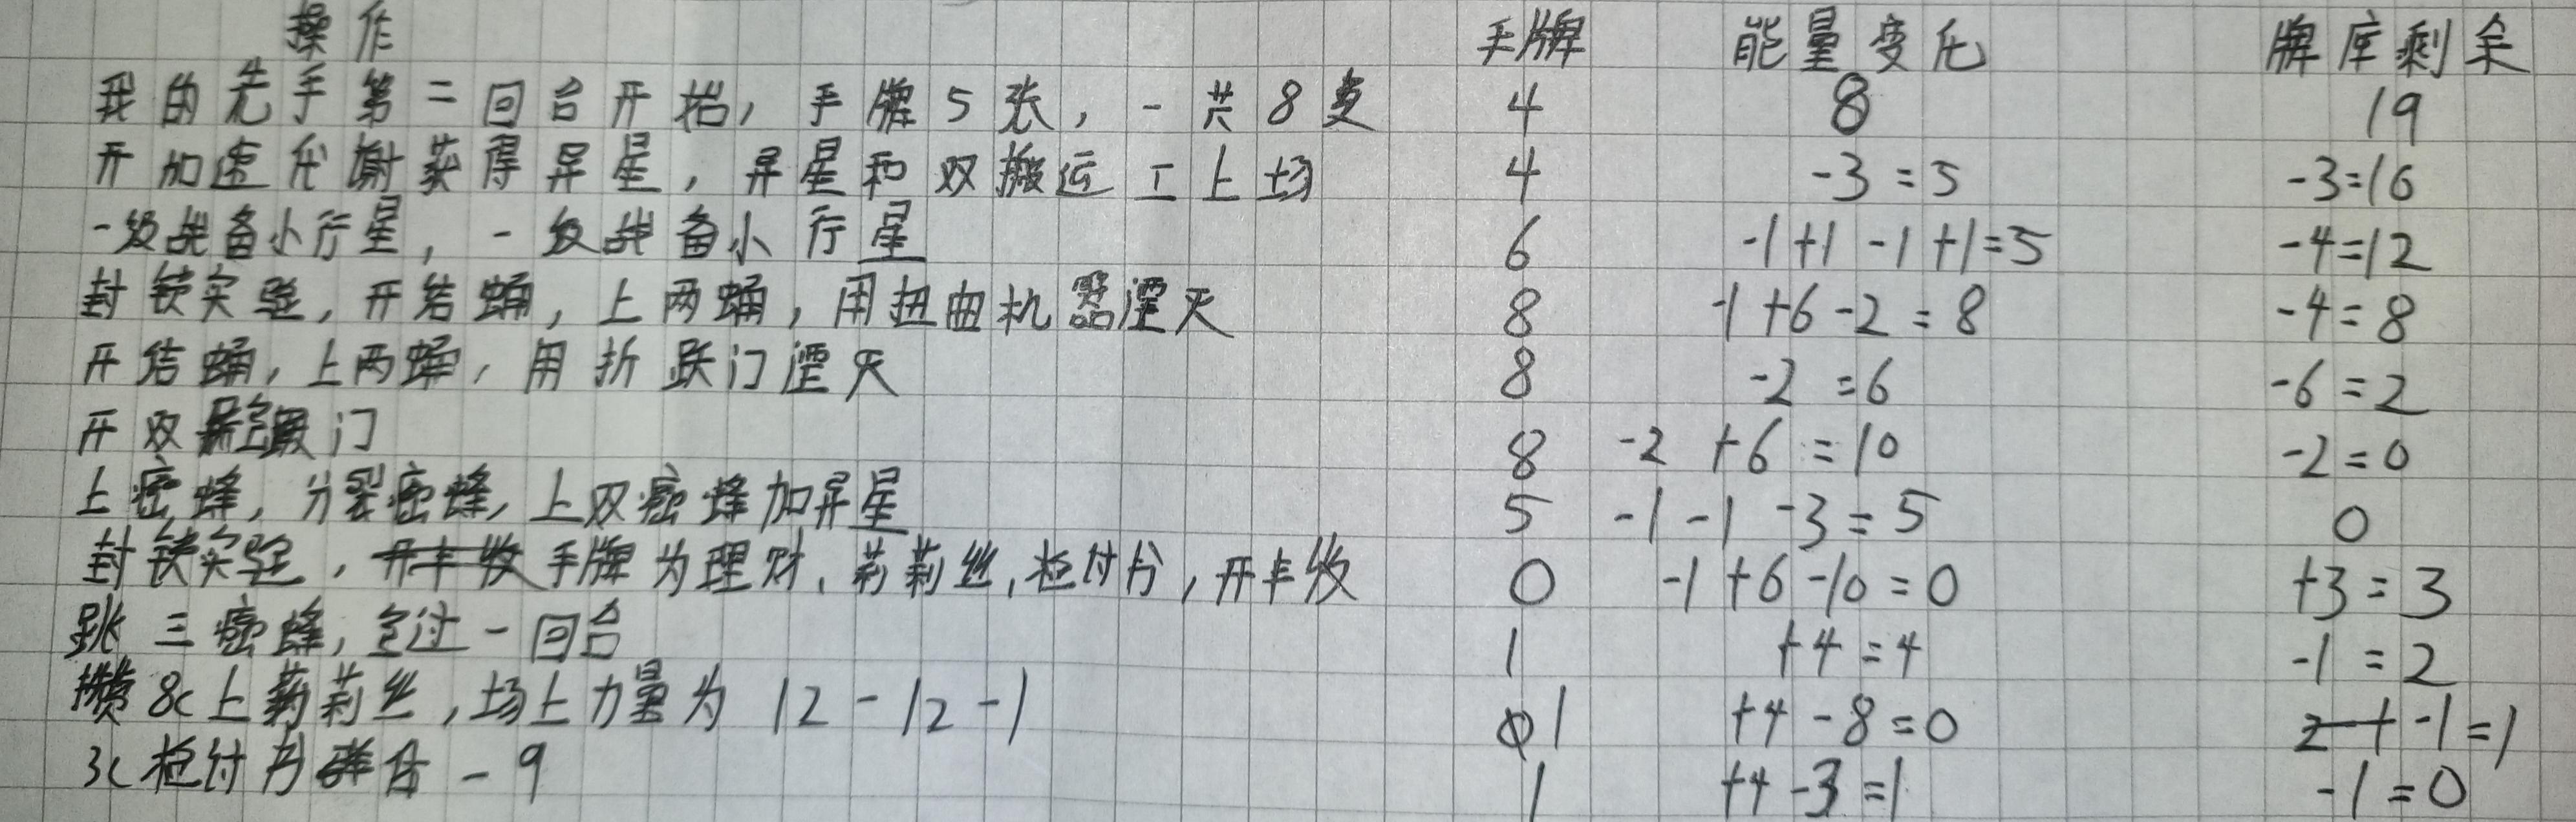 操作 手牌 能量变化 牌库剩余
我的先手第二回合开始，手牌5张，一共8费 4 8 19
开加速代谢获得异星，异星和双搬运工上场 4 -3=5 -3=16
一级战备小行星，一级战备小行星 6 -1+1-1+1=5 -4=12
封锁实验，开结蛹，上两蛹，用扭曲机器湮灭 8 -1+6-2=8 -4=8
开结蛹，上两蛹，用折跃门湮灭 8 -2=6 -6=2
开双门 8 -2+6=10 -2=0
上蜜蜂，分裂蜜蜂，上双蜜蜂加异星 5 -1-1-3=5 0
封锁实验，开丰收手牌为理财，莉莉丝，开丰收 0 -1+6-10=0 +3=3
跳三蜜蜂，空过一回合 1 +4=4 -1=2
攒8c上莉莉丝，场上力量为12-12-1 1 +4-8=0 -1=1
3c -9 1 +4-3=1 -1=0